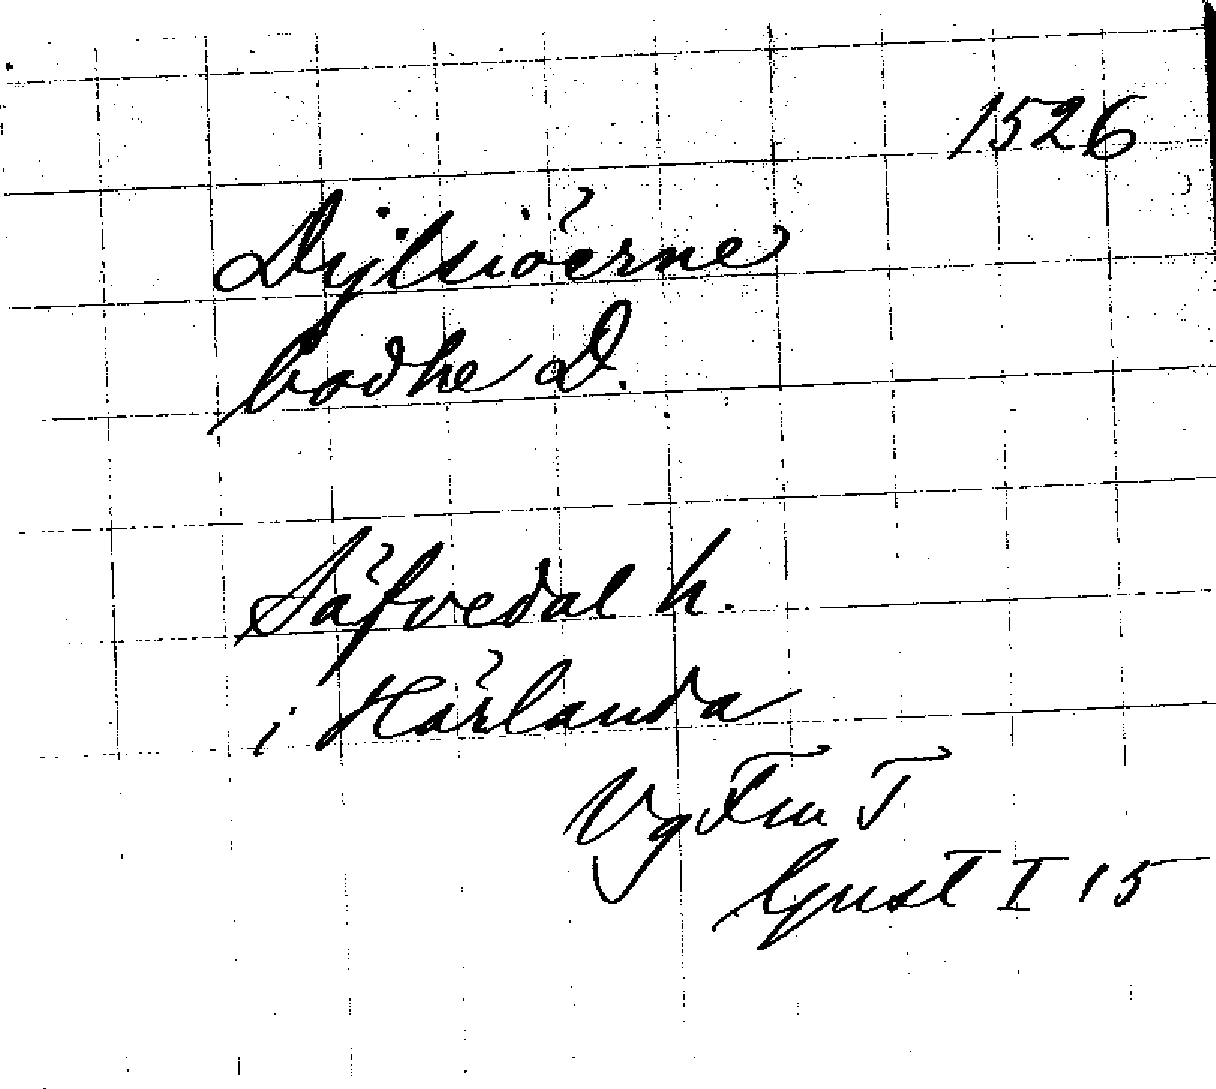 1526
Dijlsiöerne
bodhe D.
Säfvedal h.
i Härlanda
Vg Fru T
Gust I 15